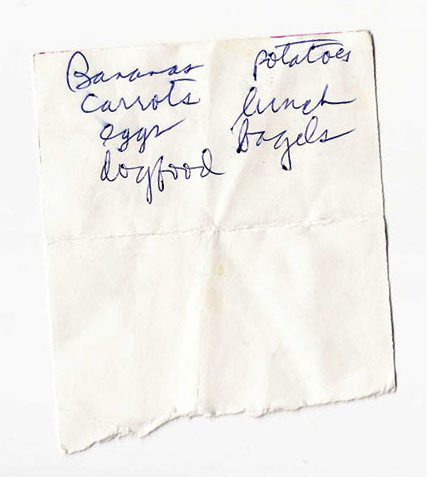 Bananas
carrots
eggs
dogfood
potatoes
lunch
bagels